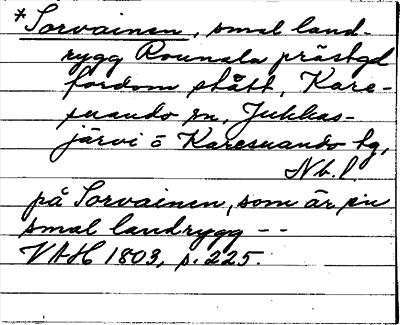 *Sorvainen, smal land-
rygg Rounala prästgd
fordom stått, Kare-
suando sn, Jukkas-
järvi o Karesuando tg,
Nb. l.
på Sorvainen, som är en
smal landrygg --
VAH 1803, s. 225.